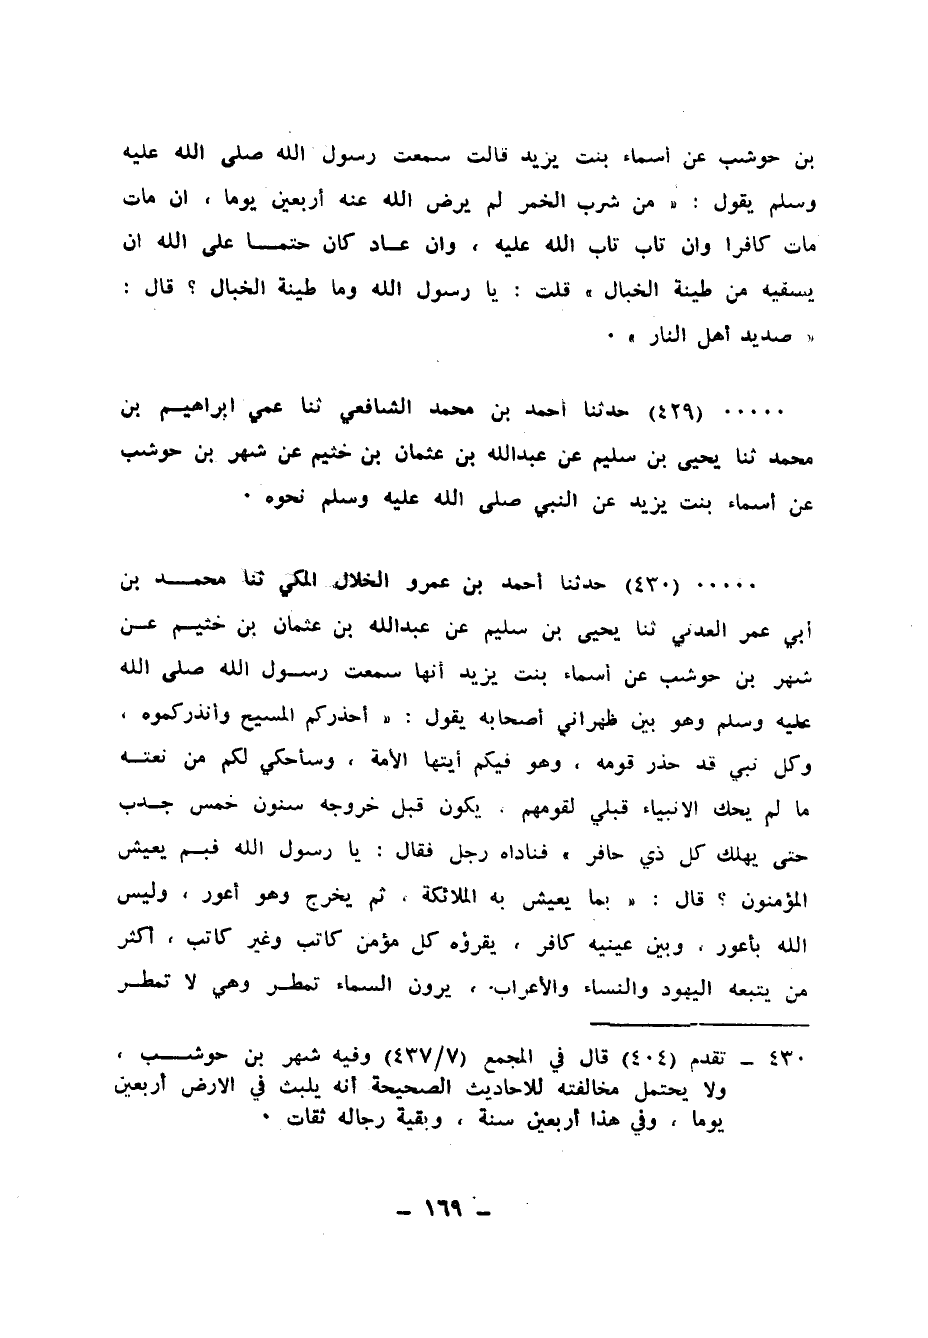 بن حوشب عن أسماء بنت يزيد قالت سمعت رسول الله صلى الله عليه
وسلم يقول : « من شرب الخمر لم يرض الله عنه أربعين يوما ، ان مات
مات كافرا وان تاب تاب الله عليه ، وان عـاد كان حتمـا على الله ان
يسقيه من طينة الخبال » قلت : يا رسول الله وما طينة الخبال ؟ قال :
« صديد أهل النار » ٠
٠٠٠٠٠ (٤٢٩) حدثنا أحمد بن محمد الشافعي ثنا عمي ابراهيـم بن
محمد ثنا يحيى بن سليم عن عبدالله بن عثمان بن خثيم عن شهر بن حوشب
عن أسماء بنت يزيد عن النبي صلى الله عليه وسلم نحوه ٠
٠٠٠٠٠ (٤٣٠) حدثنا أحمد بن عمرو الخلال المكي ثنا محمـد بن
أبي عمر العدني ثنا يحيى بن سليم عن عبدالله بن عثمان بن خثيـم عـن
شهر بن حوشب عن أسماء بنت يزيد أنها سمعت رسـول الله صلى الله
عليه وسلم وهو بين ظهراني أصحابه يقول : « أحذركم المسيح وأنذركموه ،
وكل نبي قد حذر قومه ، وهو فيكم أيتها الأمة ، وسأحكي لكم من نعتـه
ما لم يحك الانبياء قبلي لقومهم ، يكون قبل خروجه سنون خمس جـدب
حتى يهلك كل ذي حافر » فناداه رجل فقال : يا رسول الله فبـم يعيش
المؤمنون ؟ قال : « بما يعيش به الملائكة ، ثم يخرج وهو أعور ، وليس
الله بأعور ، وبين عينيه كافر ، يقرؤه كل مؤمن كاتب وغير كاتب ، اكثر
من يتبعه اليهود والنساء والأعراب ، يرون السماء تمطـر وهي لا تمطـر
٤٣٠ ـ تقدم (٤٠٤) قال في المجمع (٤٣٧/٧) وفيه شهر بن حوشـب ،
ولا يحتمل مخالفته للاحاديث الصحيحة أنه يلبث في الارض أربعين
يوما ، وفي هذا أربعين سنة ، وبقية رجاله ثقات ٠
ـ ١٦٩ ـ